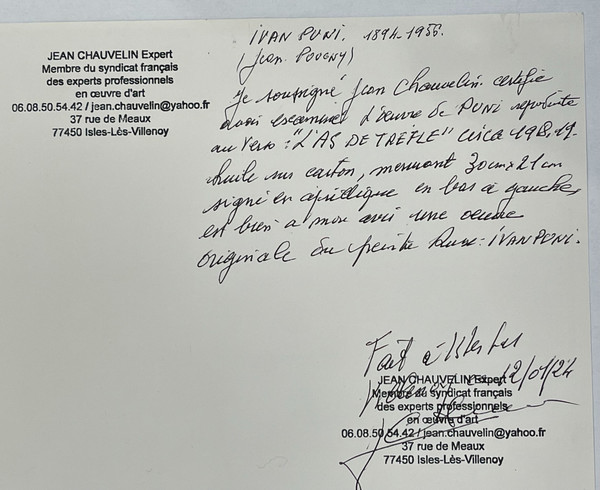 JEAN CHAUVELIN Expert
Membre du syndicat français
des experts professionnels
en œuvre d'art
06.08.50.54.42 / jean.chauvelin@yahoo.fr
37 rue de Meaux
77450 Isles-Lès-Villenoy
IVAN PUNI. 1894-1956.
(Jean POUGNY)
Je soussigné Jean Chauvelin certifie
avoir examiné l'œuvre de PUNI reproduite
au verso: "L'AS DE TREFLE" circa 1918.19
huile sur carton, mesurant 30cm x 21cm
signé en cyrillique en bas à gauche,
est bien à mon avis une œuvre
originale du peintre Russe: IVAN PUNI.
Fait à Isles les
12/01/24
JEAN CHAUVELIN Expert
Membre du syndicat français
des experts professionnels
en œuvre d'art
06.08.50.54.42 / jean.chauvelin@yahoo.fr
37 rue de Meaux
77450 Isles-Lès-Villenoy